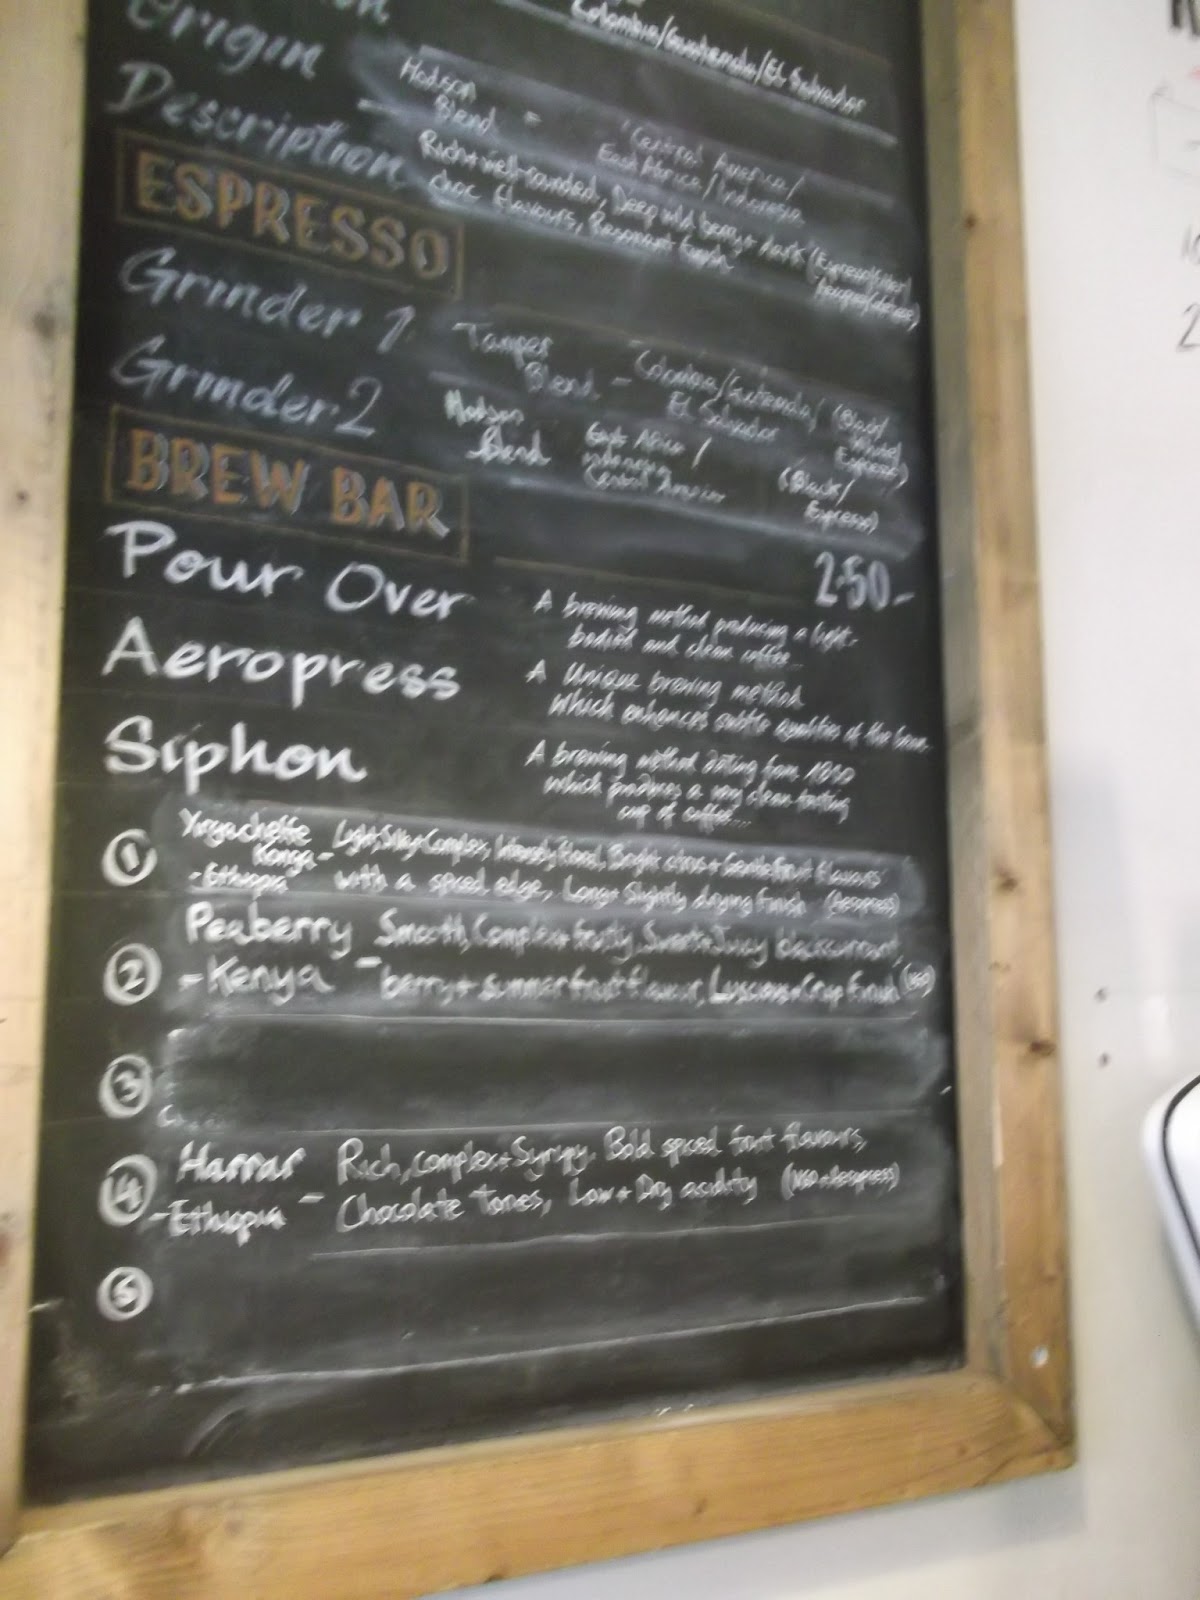 Colombia/Guatemala/El Salvador
Origin
Hodson
Blend - Central America/
East Africa/Indonesia
Description
Rich + well-rounded, Deep wild berry + dark
choc flavours, Resonant finish
ESPRESSO
Grinder 1 Tamper
Blend - Colombia/Guatemala/ (Black/
El Salvador White/
Espresso)
Grinder 2 Hodson
Blend East Africa / (Black/
Indonesia Espresso)
Central America
BREW BAR
2.50-
Pour Over A brewing method producing a light-
bodied and clean coffee...
Aeropress A Unique brewing method
which enhances subtle qualities of the bean
Siphon A brewing method dating from 1830
which produces a very clean tasting
cup of coffee....
1 Konga - Light, Silky + Complex, Floral, Bright citrus + Gentle fruit flavours
- Ethiopia with a spiced edge, Long + Slightly drying finish (Aeropress)
2 Peaberry Smooth, Complex + fruity, Sweet + Juicy blackcurrant,
- Kenya - berry + summer fruit flavour, Luscious + Crisp Finish (V60)
3
4 Harrar Rich, Complex + Syrupy. Bold spiced fruit flavours,
- Ethiopia - Chocolate Tones, Low + Dry acidity (V60 + Aeropress)
5